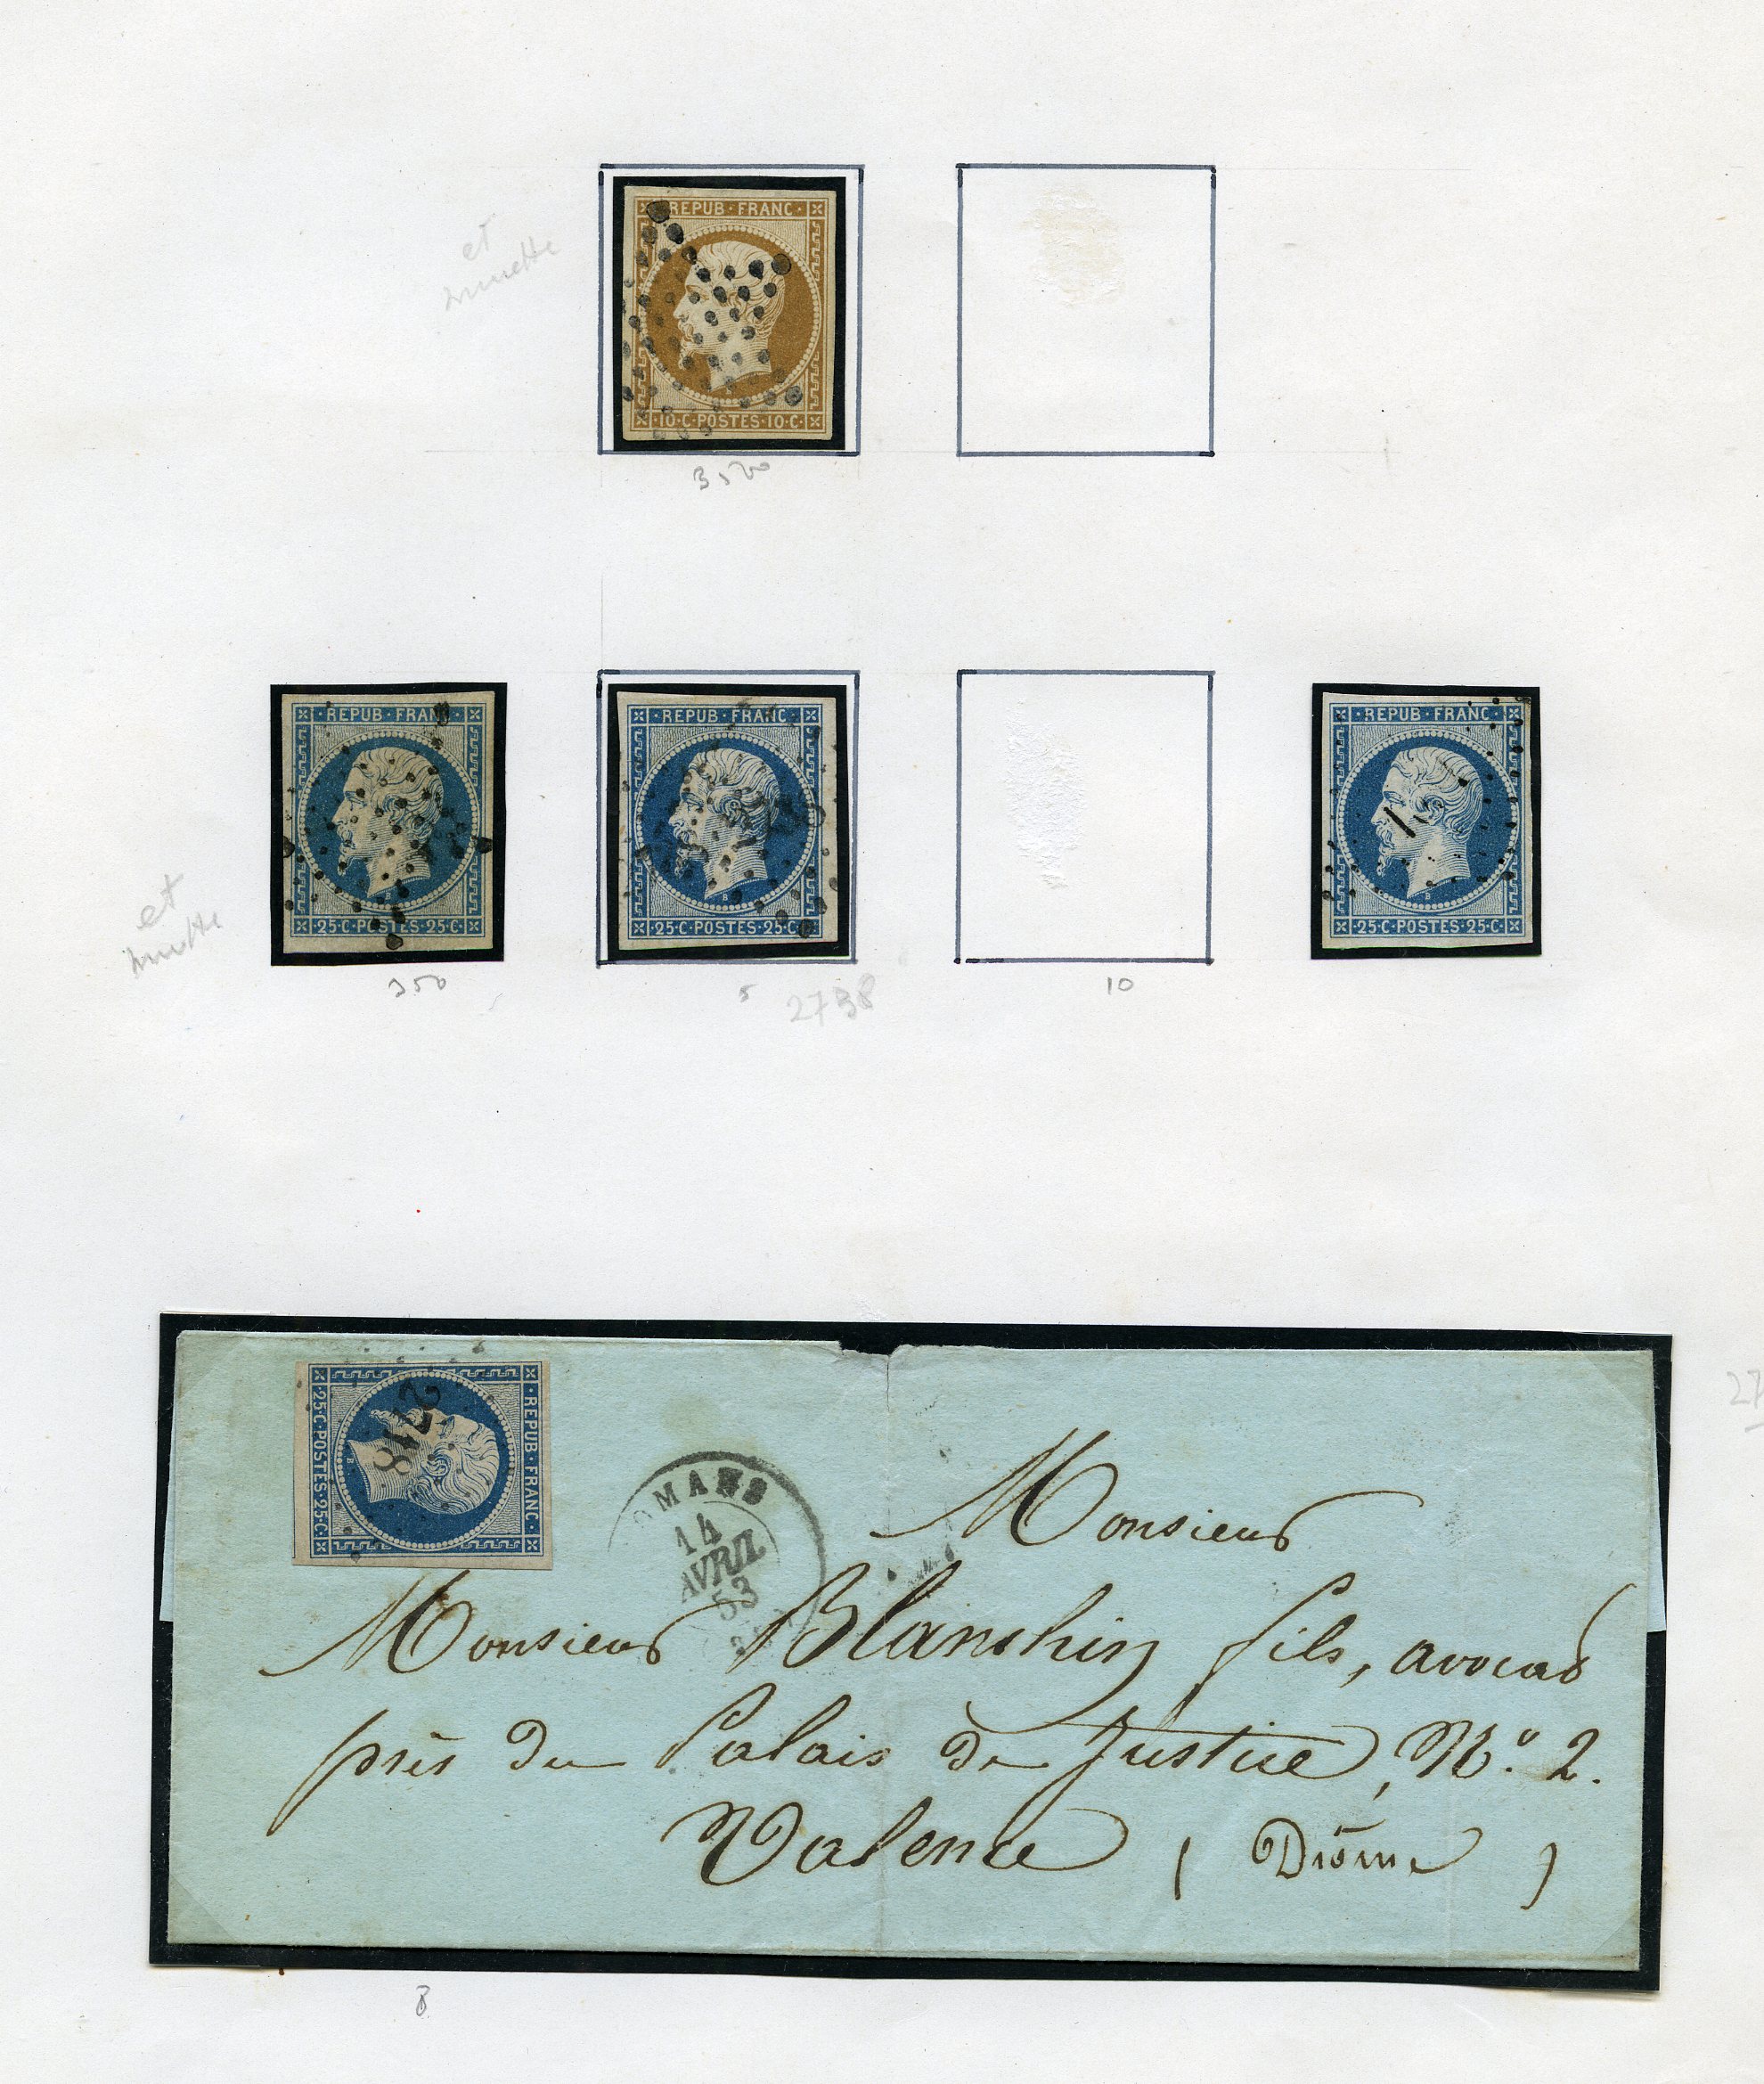 et
muette
REPUB·FRANC·
·10·C·POSTES·10·C·
3500
·REPUB·FRANC·
·25·C·POSTES·25·C·
·REPUB·FRANC·
B
·25·C·POSTES·25·C·
·REPUB·FRANC·
1
B
·25·C·POSTES·25·C·
et
muette
350
5
2738
10
27
·REPUB·FRANC·
B
·25·C·POSTES·25·C·
2718
OMANS
14
AVRIL
53
Monsieur
Monsieur Blanchin fils, avocat
près du Palais de Justice, No. 2.
Valence ( Drôme )
8